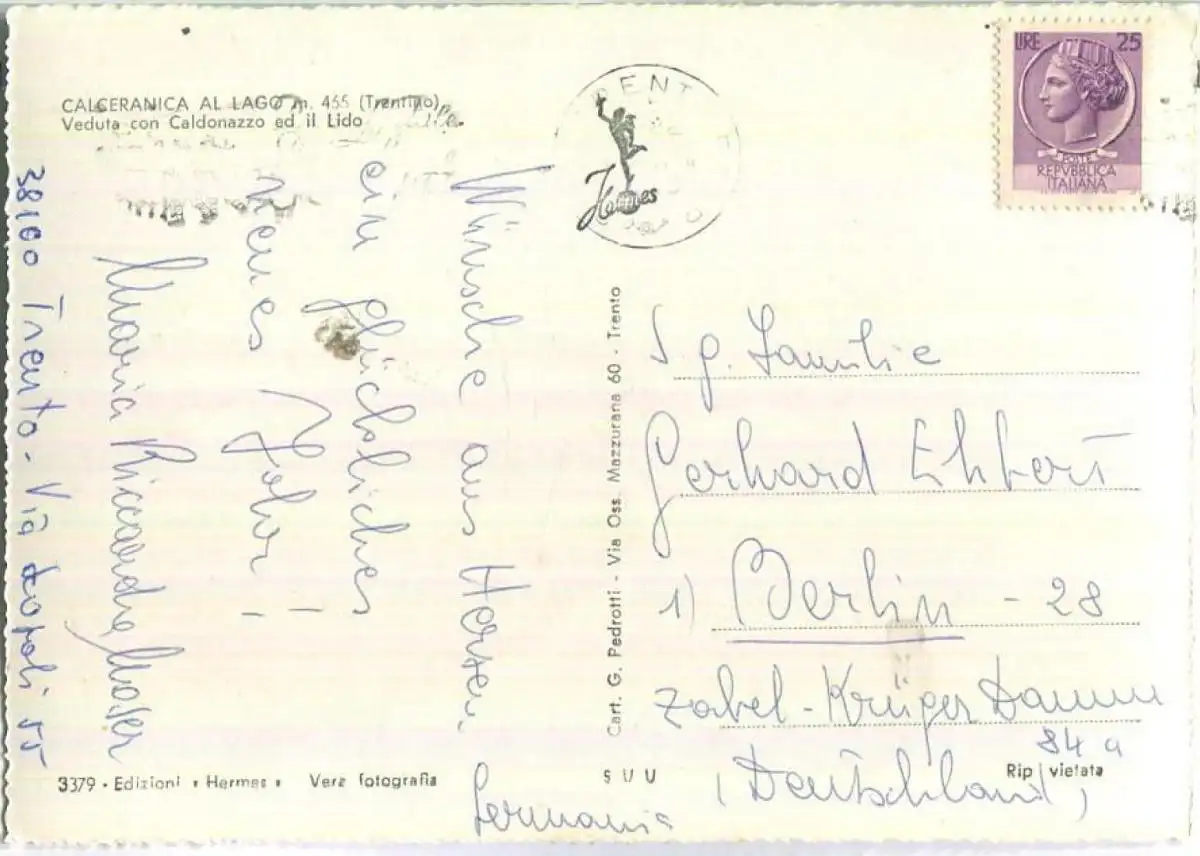 CALCERANICA AL LAGO m. 455 (Trentino)
Veduta con Caldonazzo ed il Lido
LIRE 25
POSTE
REPVBBLICA
ITALIANA
Hermes
Wünsche aus Herzen
ein glückliches
neues Jahr!
Maria
38100 Trento - Via
55
Cart. G. Pedrotti - Via Oss. Mazzurana 60 - Trento
S. g. Familie
Gerhard Ehbert
1) Berlin - 28
Zabel-Krüger Damm
84 a
(Deutschland)
Germania
3379 - Edizioni « Hermes » Vera fotografia
S U U
Rip. vietata